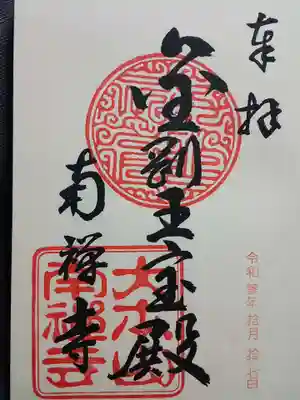 奉拝
金剛王宝殿
南禅寺
大本山
南禅寺
令和
年
拾月